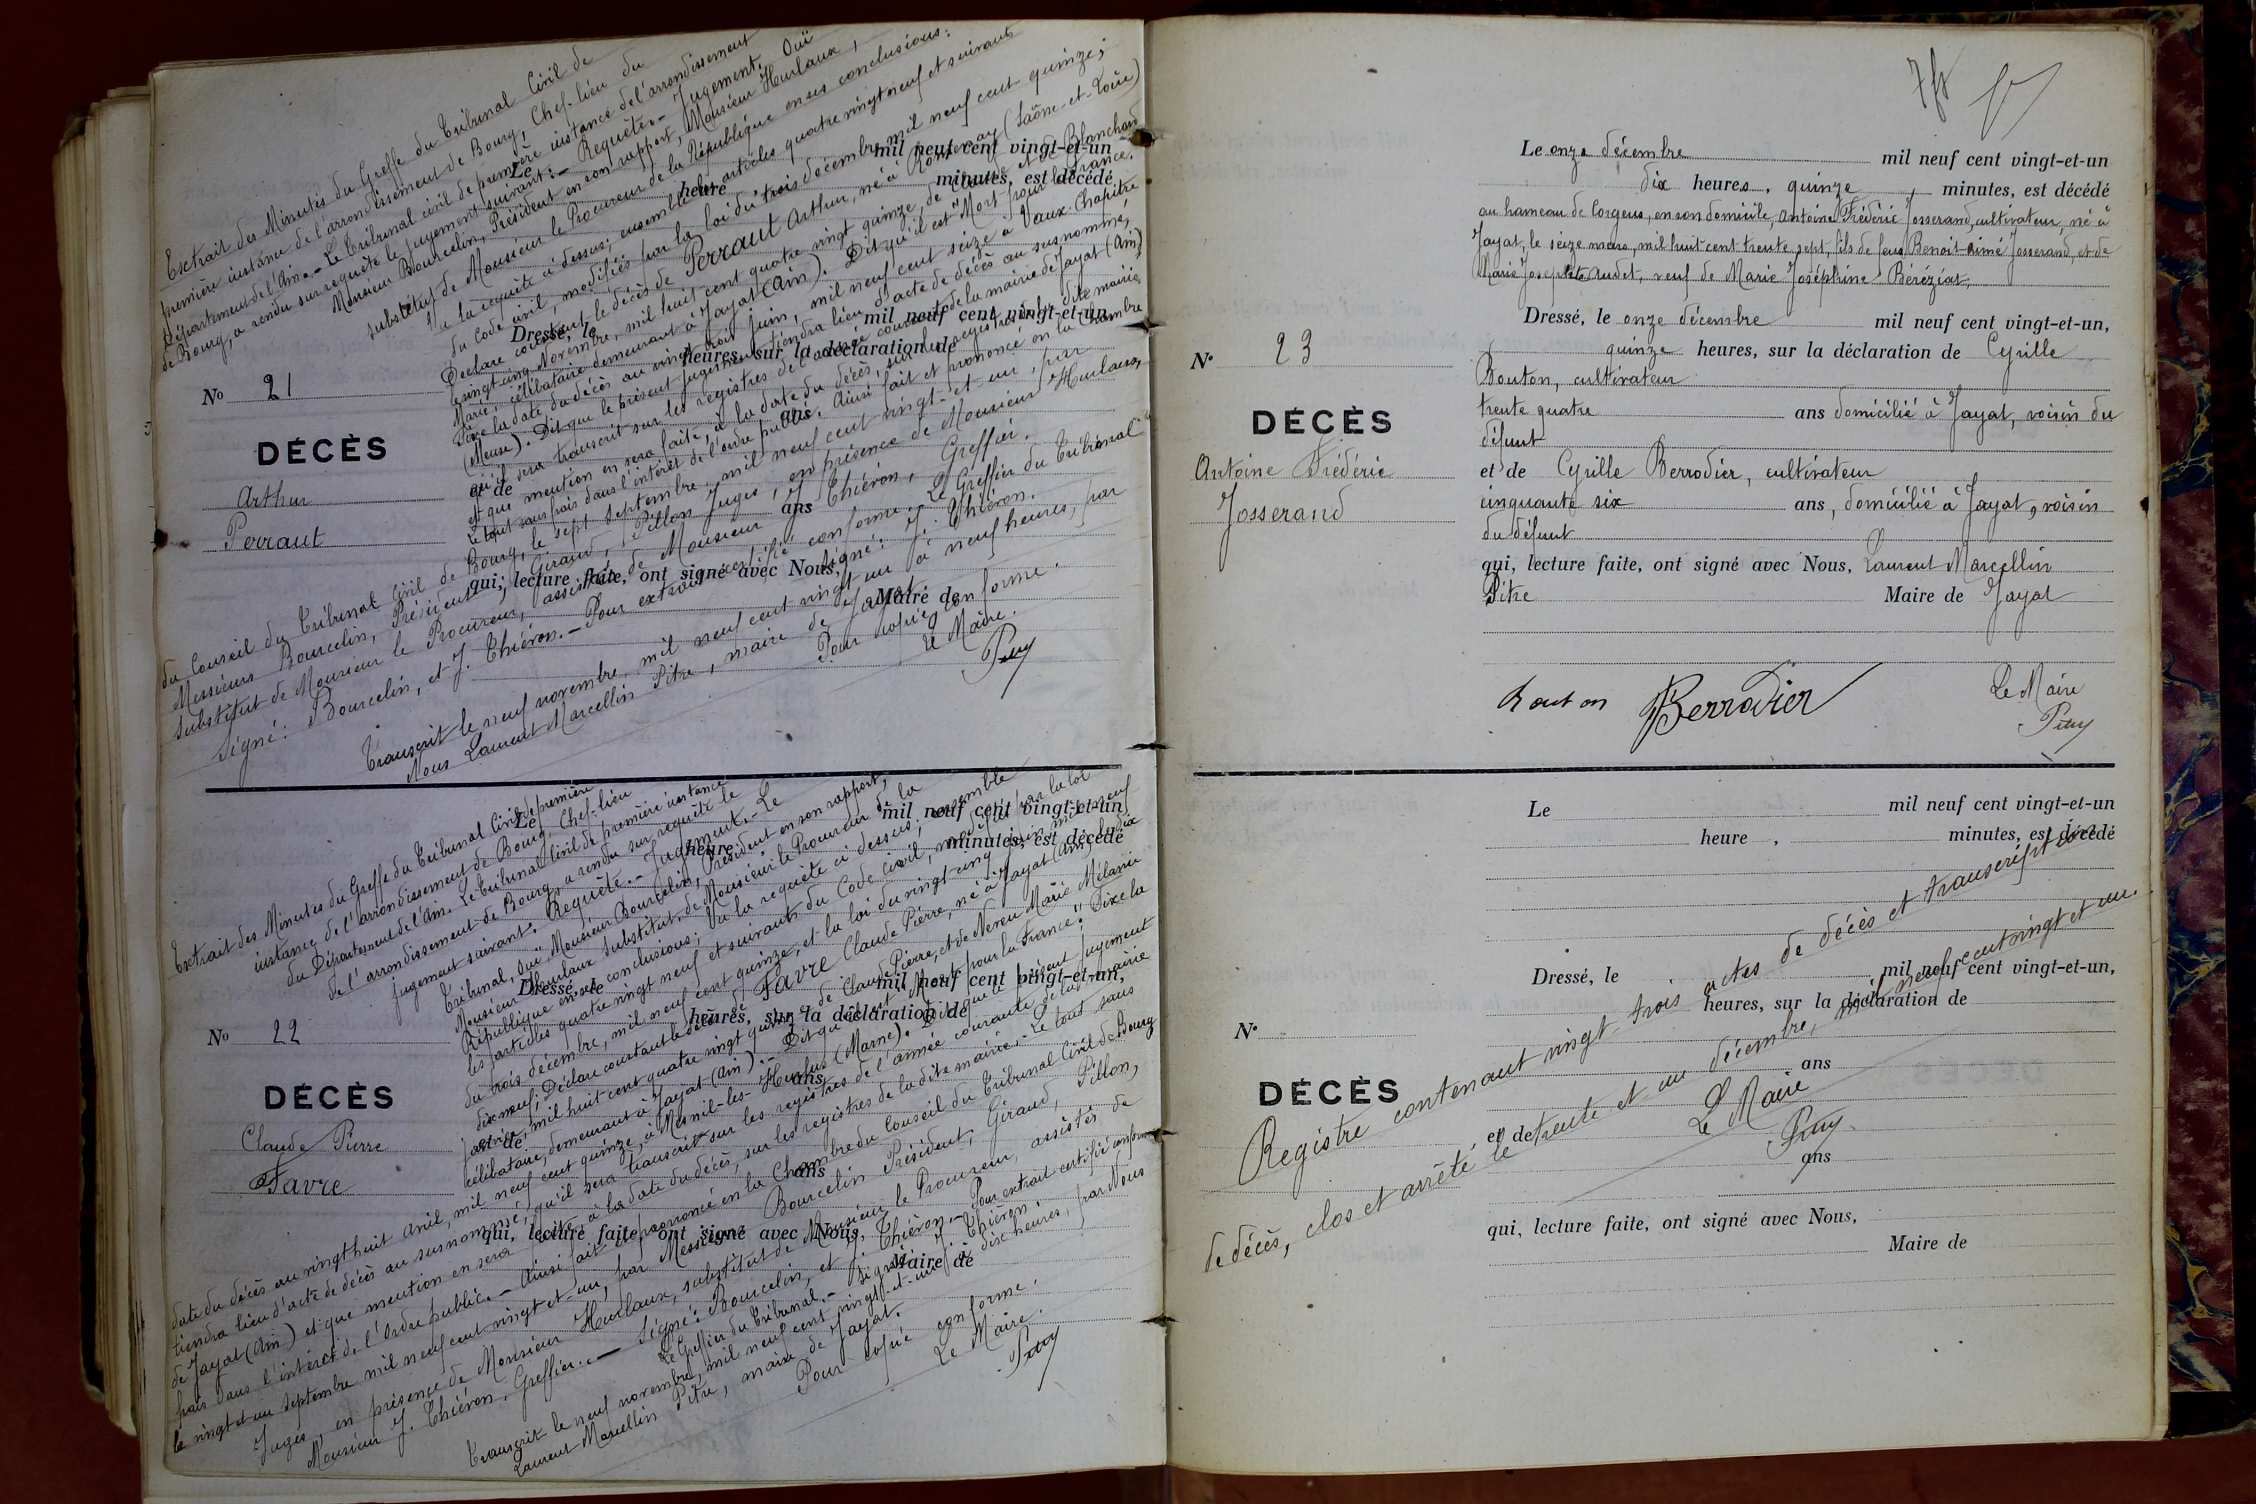 Extrait des Minutes du Greffe du Tribunal Civil de
première instance de l'arrondissement de Bourg, Chef-lieu du
Département de l'Ain. - Le Tribunal civil de première instance de l'arrondissement
de Bourg, a rendu sur requête le jugement suivant: - Requête. - Jugement. Ouï
Monsieur Bourcelin, Président en son rapport, Monsieur Hurlaux,
substitut de Monsieur le Procureur de la République en ses conclusions:
Vu la requête ci dessus; ensemble les articles quatre vingt neuf et suivants
du Code civil, modifiés par la loi du trois décembre mil neuf cent quinze;
Déclare constant le décès de Perraut Arthur, né à Romenay (Saône-et-Loire)
le vingt cinq Novembre, mil huit cent quatre vingt quinze, de et de Blanchard
Marie, célibataire demeurant à Jayat (Ain). Dit qu'il est "Mort pour la France.
Fixe la date du décès au vingt trois juin, mil neuf cent seize à Vaux-Chapitre
(Meuse). Dit que le présent jugement tiendra lieu d'acte de décès au susnommé,
qu'il sera transcrit sur les registres de l'année courante de la mairie de Jayat (Ain)
et que mention en sera faite, à la date du décès, sur les registres de la dite mairie
Le tout sans frais dans l'intérêt de l'ordre public. Ainsi fait et prononcé en la Chambre
du Conseil du Tribunal civil de Bourg, le sept septembre, mil neuf cent vingt-et-un, par
Messieurs Bourcelin, Président, Giraud, Pillon Juges, en présence de Monsieur Hurlaux,
substitut de Monsieur le Procureur, assistés de Monsieur J. Thiéron, Greffier.
Signé: Bourcelin, et J. Thiéron. - Pour extrait certifié conforme. Le Greffier du Tribunal
Signé: J. Thiéron.
Transcrit le neuf novembre, mil neuf cent vingt un à neuf heures, par
Nous Laurent Marcellin Pitre, maire de Jayat.
Pour copie conforme.
Le Maire.
Pitre
Le mil neuf cent vingt-et-un
heure minutes, est décédé
Dressé, le mil neuf cent vingt-et-un,
heures, sur la déclaration de
No 21
DÉCÈS
Arthur
Perraut
ans
et de
ans
qui, lecture faite, ont signé avec Nous,
Maire de
Extrait des Minutes du Greffe du Tribunal Civil de première
instance de l'arrondissement de Bourg, Chef-lieu
du Département de l'Ain. Le Tribunal Civil de première instance
de l'arrondissement de Bourg, a rendu sur requête le
jugement suivant. Requête. - Jugement. - Le
Tribunal, Ouï Monsieur Bourcelin, Président en son rapport,
Monsieur Hurlaux substitut de Monsieur le Procureur de la
République en ses conclusions; Vu la requête ci dessus; ensemble
les articles quatre vingt neuf et suivants du Code civil, modifiés par la loi
du trois décembre, mil neuf cent quinze, et la loi du vingt cinq juin mil neuf cent
dix neuf; Déclare constant le décès de Favre Claude Pierre, né à Jayat (Ain) le dix
janvier, mil huit cent quatre vingt quinze de Claude Pierre, et de Neveu Marie Mélanie
célibataire, demeurant à Jayat (Ain). - Dit qu'il est "Mort pour la France". Fixe la
date du décès au vingt huit Avril, mil neuf cent quinze, à Mesnil-les-Hurlus (Marne). Dit que le présent jugement
tiendra lieu d'acte de décès au susnommé, qu'il sera transcrit sur les registres de l'année courante de la mairie
de Jayat (Ain) et que mention en sera faite, à la date du décès, sur les registres de la dite mairie. Le tout sans
frais dans l'intérêt de l'Ordre public. - Ainsi fait et prononcé en la Chambre du Conseil du Tribunal Civil de Bourg
le vingt et un septembre mil neuf cent vingt-et-un, par Messieurs Bourcelin Président, Giraud, Pillon,
Juges, en présence de Monsieur Hurlaux, substitut de Monsieur le Procureur, assistés de
Monsieur J. Thiéron, Greffier. - Signé: Bourcelin, et J. Thiéron. - Pour extrait certifié conforme
Le Greffier du Tribunal. - Signé J. Thiéron.
Transcrit le neuf novembre, mil neuf cent vingt-et-un, à dix heures, par Nous
Laurent Marcellin Pitre, maire de Jayat.
Pour copie conforme.
Le Maire.
Pitre
Le mil neuf cent vingt-et-un
heure minutes, est décédé
Dressé, le mil neuf cent vingt-et-un,
heures, sur la déclaration de
No 22
DÉCÈS
Claude Pierre
Favre
ans
et de
ans
qui, lecture faite, ont signé avec Nous,
Maire de
Le onze décembre mil neuf cent vingt-et-un
dix heures, quinze, minutes, est décédé
au hameau de Corgeus, en son domicile, Antoine Frédéric Josserand, cultivateur, né à
Jayat, le seize mars, mil huit cent trente sept, fils de feus Benoit-Aimé Josserand, et de
Marie Josephte Audet, veuf de Marie Joséphine Béréziat,
Dressé, le onze décembre mil neuf cent vingt-et-un,
quinze heures, sur la déclaration de Cyrille
N° 23
Bouton, cultivateur
trente quatre ans domicilié à Jayat, voisin du
DÉCÈS
défunt
Antoine Frédéric
et de Cyrille Berrodier, cultivateur
Josserand
cinquante six ans, domicilié à Jayat, voisin
du défunt
qui, lecture faite, ont signé avec Nous, Laurent Marcellin
Pitre Maire de Jayat
Bouton Berrodier
Le Maire
Pitre
Le mil neuf cent vingt-et-un
heure, minutes, est décédé
Dressé, le mil neuf cent vingt-et-un,
heures, sur la déclaration de
N°
ans
DÉCÈS
et de
ans
qui, lecture faite, ont signé avec Nous,
Maire de
Registre contenant vingt-trois actes de décès et transcriptions
de décès, clos et arrêté le trente et un décembre, mil neuf cent vingt et un.
Le Maire
Pitre